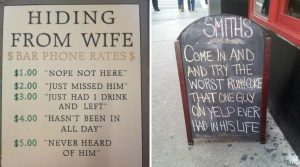 HIDING
FROM WIFE
$ BAR PHONE RATES $
$1.00 "NOPE NOT HERE"
$2.00 "JUST MISSED HIM"
$3.00 "JUST HAD 1 DRINK
AND LEFT"
$4.00 "HASN'T BEEN IN
ALL DAY"
$5.00 "NEVER HEARD
OF HIM"
SMITHS
COME IN AND
AND TRY THE
WORST RUM & COKE
THAT ONE GUY
ON YELP EVER
HAD IN HIS LIFE